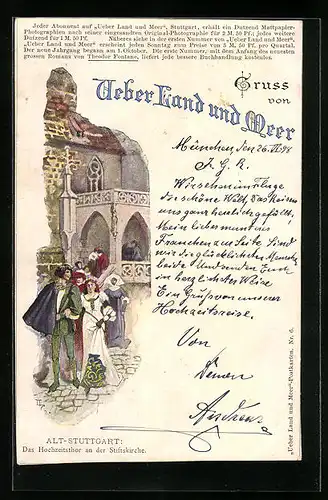 Jeder Abonnent auf „Ueber Land und Meer", Stuttgart, erhält ein Dutzend Mattpapier-
Photographien nach seiner eingesandten Original-Photographie für 2 M. 50 Pf.; jedes weitere
Dutzend für 1 M. 50 Pf. Näheres siehe in der ersten Nummer von „Ueber Land und Meer".
„Ueber Land und Meer" erscheint jeden Sonntag zum Preise von 3 M. 50 Pf. pro Quartal.
Der neue Jahrgang begann am 1. Oktober. Die erste Nummer, mit dem Anfang des neuesten
grossen Romans von Theodor Fontane, liefert jede bessere Buchhandlung kostenlos.
Gruss
von
Ueber Land und Meer
München, den 26. VI. 98
Wir sehen im Fluge
die schöne Welt, das Reisen
uns ganz herrlich gefällt,
Mein liebes
Frauchen zur Seite Sind
wir die glücklichsten Mensch
beide Und senden Euch
in herzlichster Weise
Ein Gruß von unserer
Hochzeitsreise.
Von
Deinen
ALT-STUTTGART:
Das Hochzeitsthor an der Stiftskirche.
„Ueber Land und Meer"-Postkarten. Nr. 6.